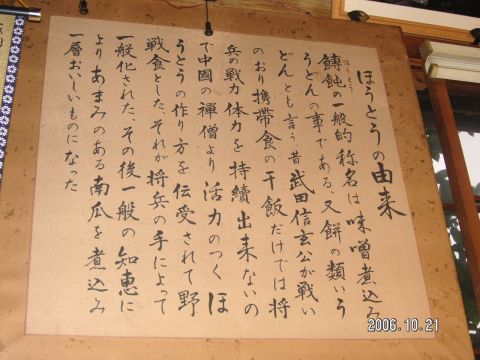 ほうとうの由来
餺飩の一般的称名は味噌煮込み
うどんの事である、又餅の類いう
どんとも言う昔武田信玄公が戦い
のおり携帯食の干飯だけでは将
兵の戦力体力を持續出来ないの
で中國の禅僧より活力のつくほ
うとうの作り方を伝受されて野
戦食とした、それが将兵の手によって
一般化された、その後一般の知恵に
よりあまみのある南瓜を煮込み
一層おいしいものになった
2006.10.21